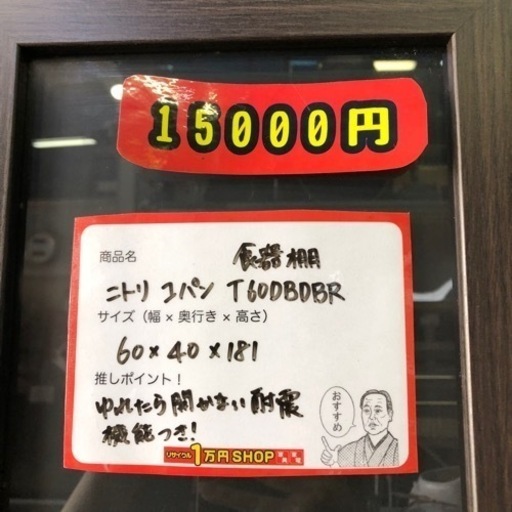 15000円
商品名 食器棚
ニトリ コパン T60DBDBR
サイズ（幅 × 奥行き × 高さ）
60×40×181
推しポイント！
ゆれたら開かない耐震
機能つき!
おすすめ
リサイクル 1万円SHOP